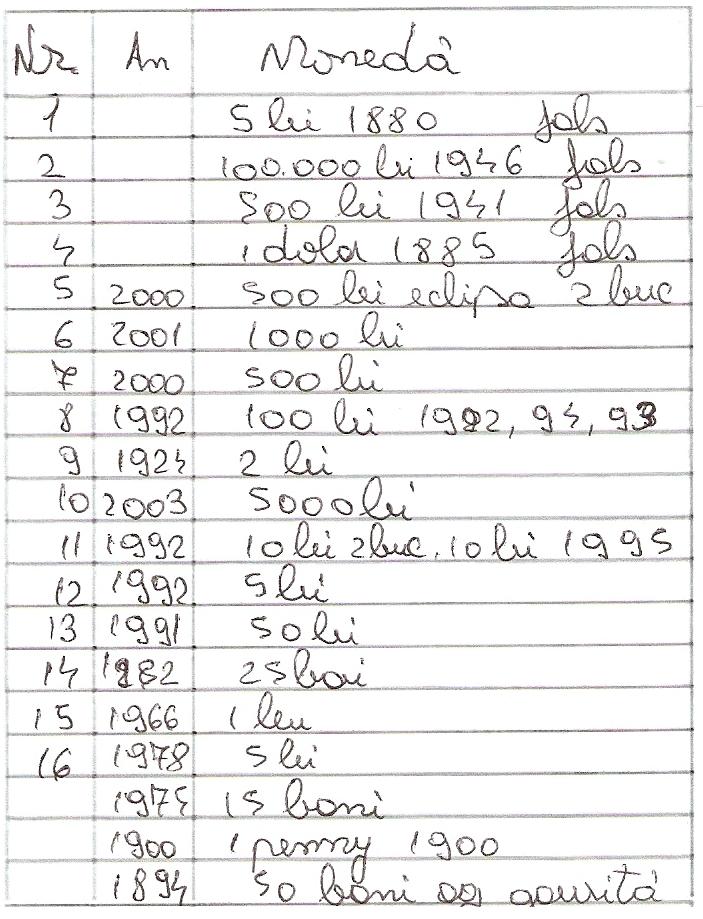 Nr. An Monedă
1 5 lei 1880 fals
2 100.000 lei 1946 fals
3 500 lei 1941 fals
4 1 dolar 1885 fals
5 2000 500 lei eclipsa 2 buc
6 2001 1000 lei
7 2000 500 lei
8 1992 100 lei 1992, 94, 93
9 1924 2 lei
10 2003 5000 lei
11 1992 10 lei 2 buc. 10 lei 1995
12 1992 5 lei
13 1991 50 lei
14 1982 25 bani
15 1966 1 leu
16 1978 5 lei
1975 15 bani
1900 1 penny 1900
1894 50 bani ag gaurită